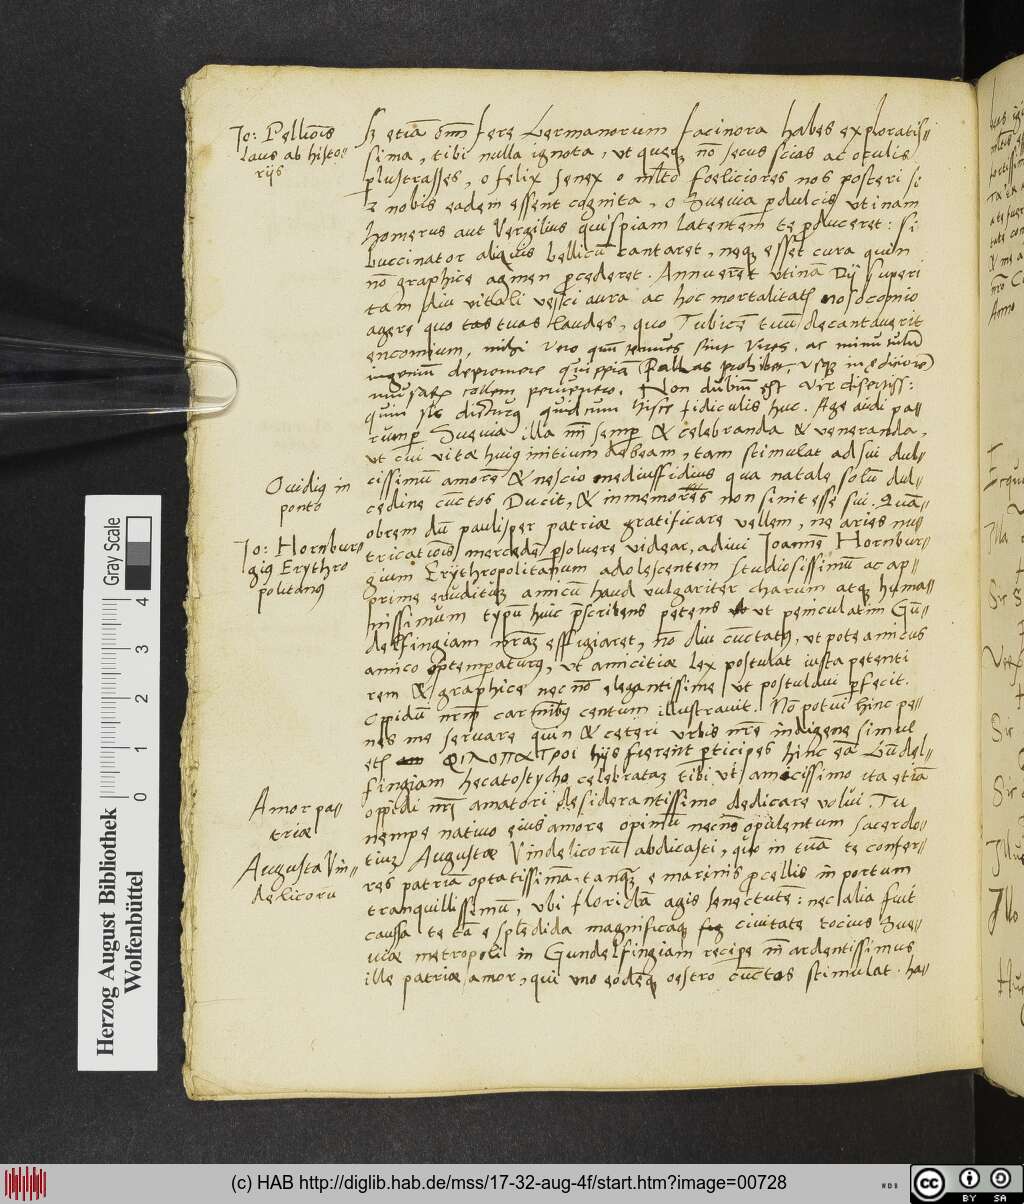 Jo: Pellionis
laus ab histo-
rijs
Ouidiq in
ponto
Jo: Hornbur-
giq Erythro
politanq
Amor pa-
triæ
Augusta Vin-
delicorū
etiā oīm fere Germanorum facinora habes exploratis-
sima, tibi nulla ignota, ut queq nō secus scias ac oculis
plustrasses, o felix senex o mlto foeliciores nos posteri si
e nobis eadem essent cognita, o Sueuia pdulcis utinam
Homerus aut Vergilius quispiam latentem te pduceret: Si
buccinator aliquis bellicū cantaret, neq esset cura quin
nō graphice agmen pcederet. Annuerēt utinā Dij superi
tam diu vitali vesci aura ac hoc mortalitatis nosocomio
agere quo tuas laudes, quo Tubicē tuū decantauerit
encomium, mihi vero qum tenues sint vires, ac minusculū
ingenium depromere quippiā Pallas prohibet, usq in ediciorē
musarū collem peruenero. Non dubiū est vir disertiss:
quin sis dicturq quid cum hisce fidiculis huc. Age audi pa-
rumper Sueuia illa semp & celebranda & veneranda,
ut cui vitæ huiq initium debeam, tam stimulat ad sui dul-
cissimū amorē & nescio mediussfidius qua natale solū dul-
cedine cūctos Ducit, & inmemores non sinit esse sui. Quā-
obrem dū paulisper patriæ gratificare vellem, ne aries nu-
tricationis mercedē psoluere videar, adiui Joannē Hornbur-
gium Erythropolitanum adolescentem studiosissimū ac ap-
prime eruditūq amicū haud vulgariter charum atq huma-
nissimum typū huic pscribens petens ut peniculatim Gū-
delfingiam nrāq effigiaret, nō diu cūctatq, ut pote amicus
amico optemperaturq, ut amicitiæ lex postulat iusta petenti
rem & graphice nec nō elegantissime ut postulaui pfecit.
Oppidū nrm carminibq centum illustrauit. Nō potui hinc pe-
nes me seruare quin & ceteri urbis nrē indigene simul
etiam φιλοπατροι hijs fierent pticipes hinc eā Gūdel-
fingiam hecatosticho celebrataq tibi uti amicissimo ita etiā
oppidi nri amatori desiderantissimo dedicare volui. Tu
nempe natiuo eius amore opimū necnō opulentum sacerdo-
tiū Augustæ Vindelicorū abdicasti, quo in tuā te confer-
res patriā optatissimā, tanq e marinis pcellis in portum
tranquillissimū, ubi floridā agis senectutē: nec alia fuit
caussa te tā e splēdida magnificaq ciuitate tocius Sue-
uicæ metropoli in Gundelfingiam recipe ardentissimus
ille patriæ amor, qui uno eodēq oestro cūctos stimulat. ha-
Gray Scale
0 1 2 3 4
Herzog August Bibliothek
Wolfenbüttel
(c) HAB http://diglib.hab.de/mss/17-32-aug-4f/start.htm?image=00728
BY SA